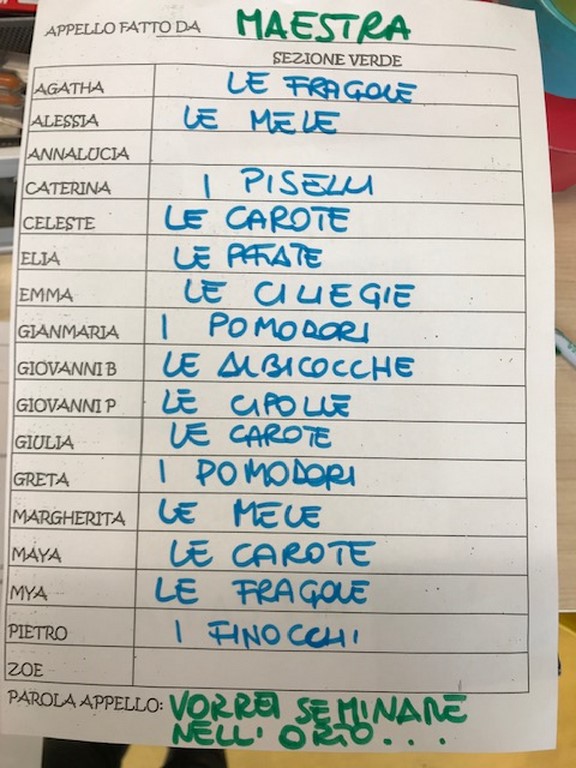 APPELLO FATTO DA MAESTRA
SEZIONE VERDE
AGATHA LE FRAGOLE
ALESSIA LE MELE
ANNALUCIA
CATERINA I PISELLI
CELESTE LE CAROTE
ELIA LE PATATE
EMMA LE CILIEGIE
GIANMARIA I POMODORI
GIOVANNI B LE ALBICOCCHE
GIOVANNI P LE CIPOLLE
GIULIA LE CAROTE
GRETA I POMODORI
MARGHERITA LE MELE
MAYA LE CAROTE
MYA LE FRAGOLE
PIETRO I FINOCCHI
ZOE
PAROLA APPELLO: VORREI SEMINARE
NELL' ORTO...